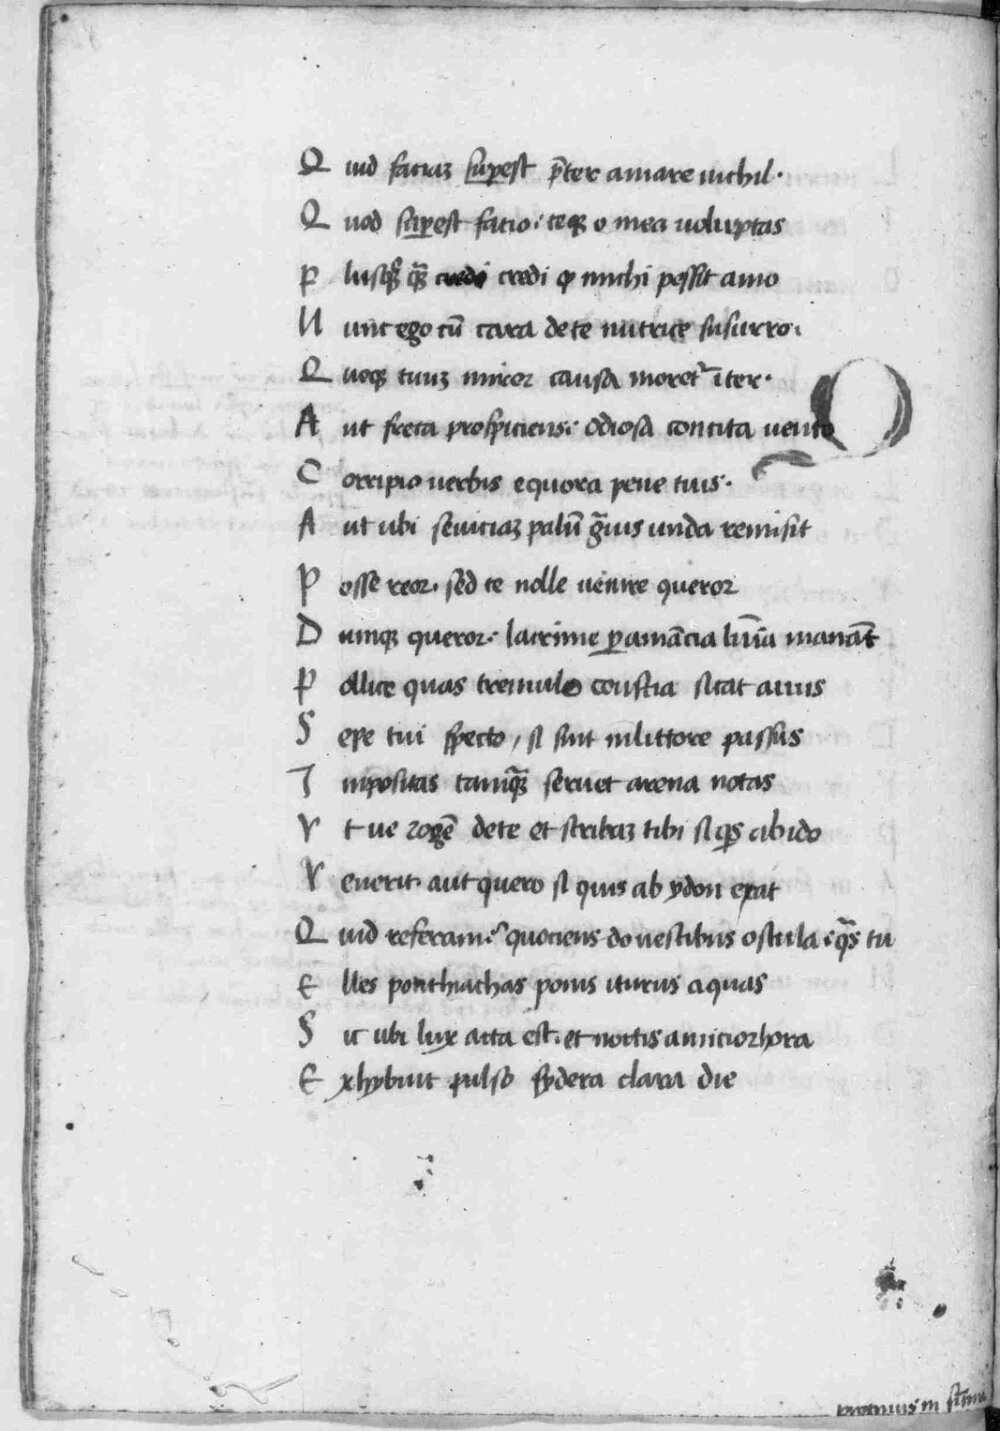 Q uid faciaʒ suꝑest p̄ter amare nichil·
Q uod suꝑest facio· teqꝫ o mea uoluptas
P lusqꝫ q̄ꝫ credi ꝙ michi possit amo
N unc ego cū cara de te nutrice susurro·
Q uoqꝫ tuuʒ miror causa moret᷑ iter·
A ut freta prospiciens· odiosa concita uento
C orripio uerbis equora pene tuis·
A ut ubi seuiciaʒ paluȝ g̃uis unda remisit
P osse reor· sed te nolle uenire queror
D umqꝫ queror· lacrime ꝑ amācia lūīa manāt
P ollice quas tremulo conscia sicat anus
S epe tui specto / si sint in littore passus
I mpositas tamq̃ꝫ seruet arena notas
V t ue rogē de te et scribaʒ tibi si q̇s abido
V enerit· aut quero si quis ab ydon eat
Q uid referam· quociens do uestibus oscula· q̃s tu
E lles ponthiachas ponis iturus aquas
S ic ubi lux acta est· et noctis amicior hora
E xhybuit pulso sydera clara die